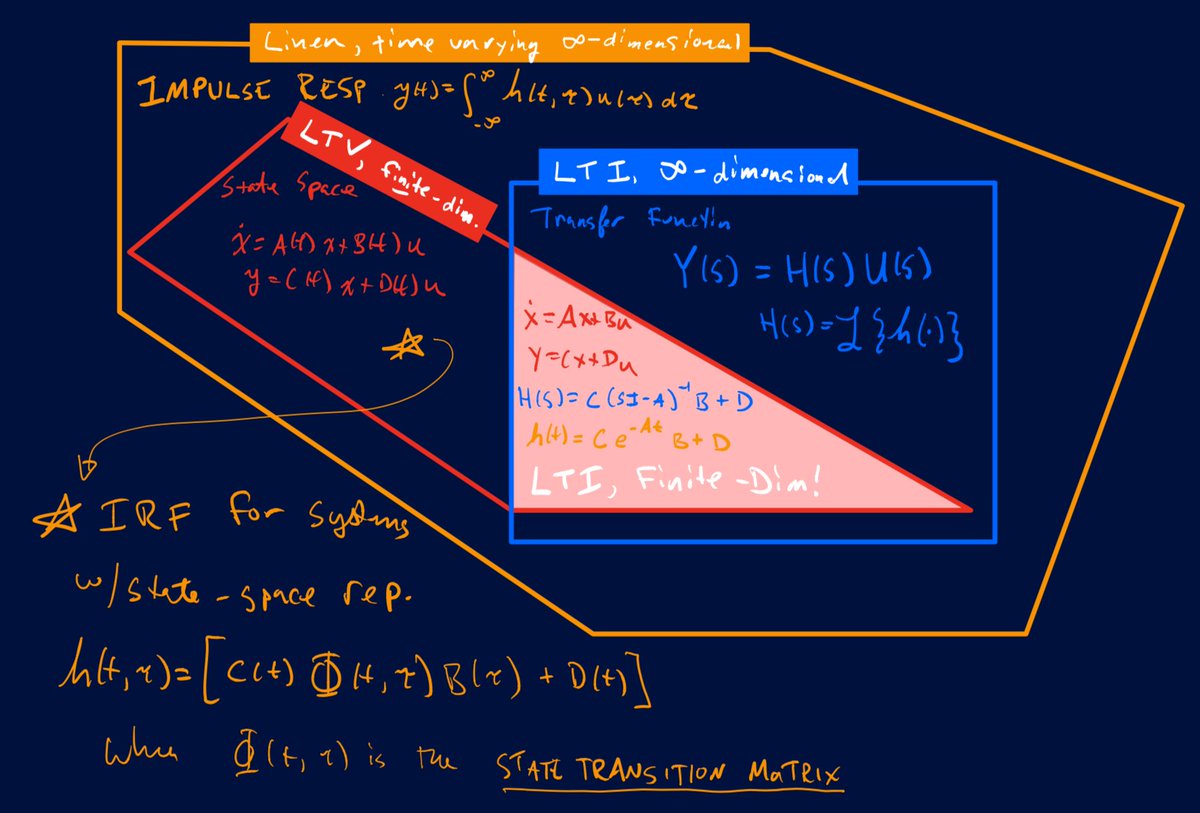 Linear, time varying ∞-dimensional
IMPULSE RESP. y(t)=∫_{-∞}^{∞} h(t,τ)u(τ)dτ
LTV, finite-dim.
State Space
ẋ=A(t)x+B(t)u
y=C(t)x+D(t)u
LTI, ∞-dimensional
Transfer Functin
Y(s)=H(s)U(s)
H(s)=ℒ{h(·)}
ẋ=Ax+Bu
y=Cx+Du
H(s)=C(sI-A)^{-1}B+D
h(t)=Ce^{-At}B+D
LTI, Finite-Dim!
☆ IRF for systems
w/state-space rep.
h(t,τ)=[C(t)Φ(t,τ)B(τ)+D(t)]
when Φ(t,τ) is the STATE TRANSITION MATRIX